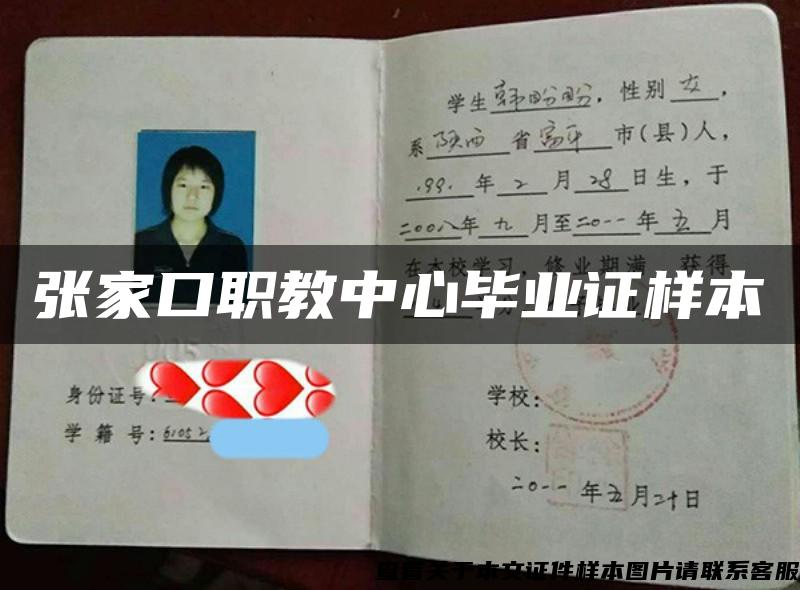 学生韩盼盼，性别女，
系陕西省富平市(县)人，
1991年2月28日生，于
二00八年九月至二0一一年五月
在本校学习，修业期满，获得
张家口职教中心毕业证样本
身份证号：
学籍号：61052
学校：
校长：
二0一一年五月二十日
查看关于本文证件样本图片请联系客服